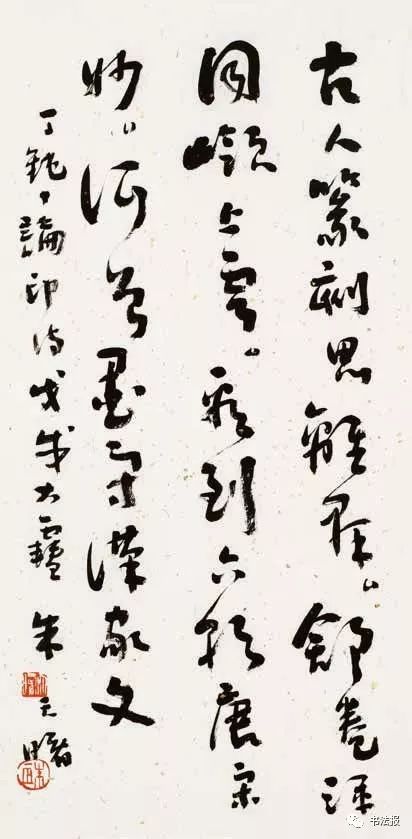 古人篆刻思離群舒卷渾
同嶺上雲看到六朝唐宋
妙何曾墨守漢家文
丁鈍丁論印詩戊戌大朱天曙
书法报